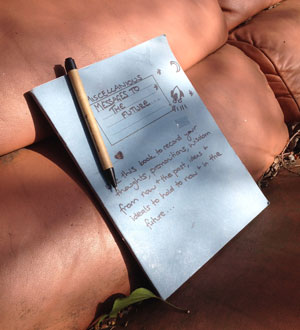 MISCELLANIOUS
MESSAGES TO
THE FUTURE
this book to record your
thoughts, premonitions, wisdom
from now + the past, ideas +
ideals to hold to now + in the
future...